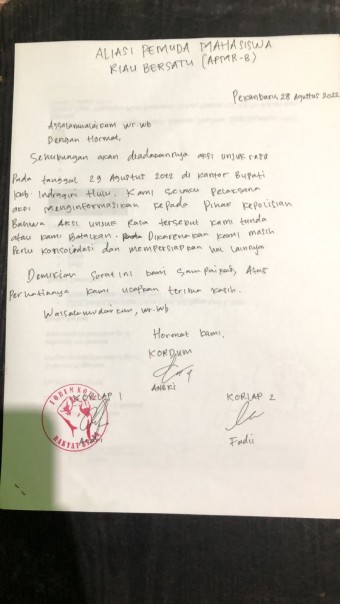 ALIASI PEMUDA MAHASISWA
RIAU BERSATU (APMR-B)
Pekanbaru, 28 Agustus 2022
Assalamualaikum wr.wb
Dengan Hormat,
Sehubungan akan diadakannya aksi unjuk rasa
Pada tanggal 29 Agustus 2022 di kantor Bupati
kab. Indragiri Hulu. Kami selaku Pelaksana
aksi menginformasikan kepada Pihak Kepolisian
Bahwa Aksi unjuk Rasa tersebut kami tunda
atau kami Batalkan. Dikarenakan kami masih
Perlu konsolidasi dan mempersiapkan hal lainnya
Demikian surat ini kami sampaikan, Atas
Perhatiannya kami ucapkan terima kasih.
Wassalamualaikum, wr.wb
Hormat kami,
KORDUM
ANGKI
KORLAP 1
KORLAP 2
Fadli